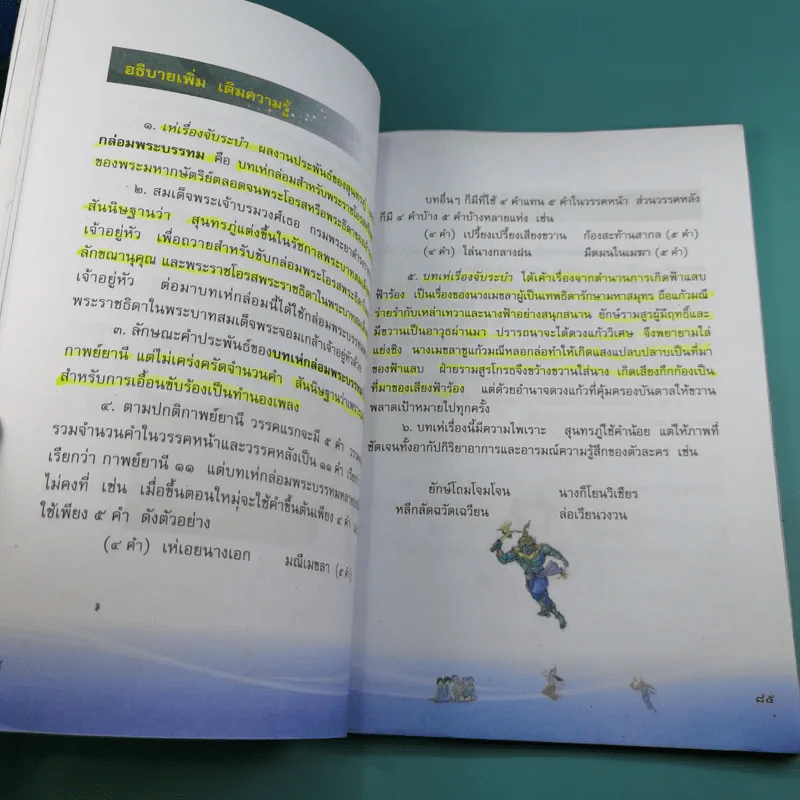 อธิบายเพิ่ม เติมความรู้
๑. เห่เรื่องจับระบำ ผลงานประพันธ์ของสุนทรภู่
กล่อมพระบรรทม คือ บทเห่กล่อมสำหรับพระราชโอรส
ของพระมหากษัตริย์ตลอดจนพระโอรสหรือพระธิดาของ
๒. สมเด็จพระเจ้าบรมวงศ์เธอ กรมพระยาดำรง
สันนิษฐานว่า สุนทรภู่แต่งขึ้นในรัชกาลพระบาทสมเด็จ
เจ้าอยู่หัว เพื่อถวายสำหรับขับกล่อมพระโอรสพระธิดา
ลักขณานุคุณ และพระราชโอรสพระราชธิดาในพระบาทสมเด็จ
เจ้าอยู่หัว ต่อมาบทเห่กล่อมนี้ได้ใช้กล่อมพระบรรทม
พระราชธิดาในพระบาทสมเด็จพระจอมเกล้าเจ้าอยู่หัวด้วย
๓. ลักษณะคำประพันธ์ของบทเห่กล่อมพระบรรทม
กาพย์ยานี แต่ไม่เคร่งครัดจำนวนคำ สันนิษฐานว่าเพราะ
สำหรับการเอื้อนขับร้องเป็นทำนองเพลง
๔. ตามปกติกาพย์ยานี วรรคแรกจะมี ๕ คำ
รวมจำนวนคำในวรรคหน้าและวรรคหลังเป็น ๑๑ คำ
เรียกว่า กาพย์ยานี ๑๑ แต่บทเห่กล่อมพระบรรทม
ไม่คงที่ เช่น เมื่อขึ้นตอนใหม่จะใช้คำขึ้นต้นเพียง ๔ คำ
ใช้เพียง ๕ คำ ดังตัวอย่าง
(๔ คำ) เห่เอยนางเอก มณีเมขลา (๕ คำ)
บทอื่นๆ ก็มีที่ใช้ ๔ คำแทน ๕ คำในวรรคหน้า ส่วนวรรคหลัง
ก็มี ๔ คำบ้าง ๕ คำบ้างหลายแห่ง เช่น
(๔ คำ) เปรี้ยงเปรี้ยงเสียงขวาน ก้องสะท้านสากล (๕ คำ)
(๔ คำ) ไล่นางกลางฝน มืดมนในเมฆา (๕ คำ)
๕. บทเห่เรื่องจับระบำ ได้เค้าเรื่องจากตำนานการเกิดฟ้าแลบ
ฟ้าร้อง เป็นเรื่องของนางเมขลาผู้เป็นเทพธิดารักษามหาสมุทร ถือแก้วมณี
ร่ายรำกับเหล่าเทวาและนางฟ้าอย่างสนุกสนาน ยักษ์รามสูรผู้มีฤทธิ์และ
มีขวานเป็นอาวุธผ่านมา ปรารถนาจะได้ดวงแก้ววิเศษ จึงพยายามไล่
แย่งชิง นางเมขลาชูแก้วมณีหลอกล่อทำให้เกิดแสงแปลบปลาบเป็นที่มา
ของฟ้าแลบ ฝ่ายรามสูรโกรธจึงขว้างขวานใส่นาง เกิดเสียงกึกก้องเป็น
ที่มาของเสียงฟ้าร้อง แต่ด้วยอำนาจดวงแก้วที่คุ้มครองบันดาลให้ขวาน
พลาดเป้าหมายไปทุกครั้ง
๖. บทเห่เรื่องนี้มีความไพเราะ สุนทรภู่ใช้คำน้อย แต่ให้ภาพที่
ชัดเจนทั้งอากัปกิริยาอาการและอารมณ์ความรู้สึกของตัวละคร เช่น
ยักษ์โถมโจมโจน นางก็โยนวิเชียร
หลีกลัดฉวัดเฉวียน ล่อเวียนวงวน
๘๕